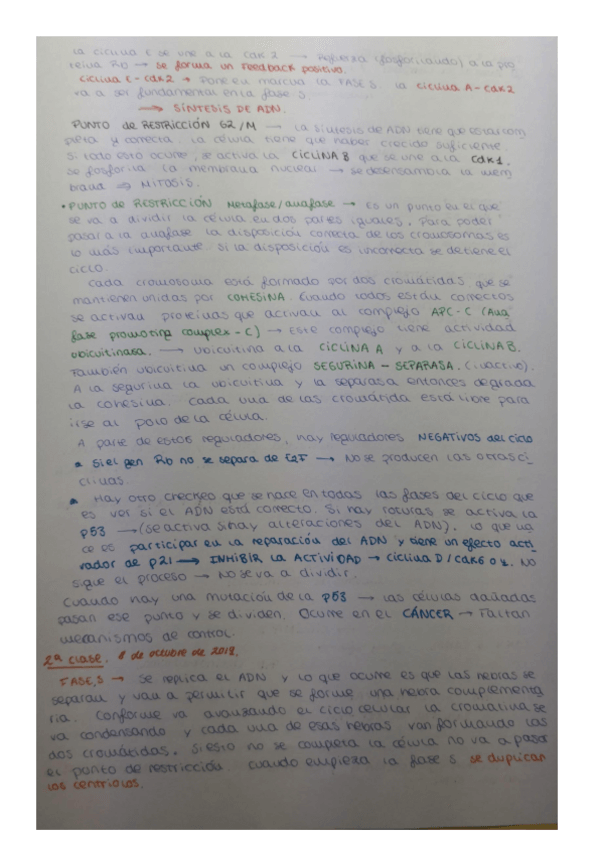 la ciclina E se une a la Cdk2 → Refuerza (fosforilando) a la pro
teína Rb → se forma un Feedback positivo.
ciclina E-cdk2 → Pone en marcha la FASE S. la ciclina A-cdk2
va a ser fundamental en la fase S.
→ SÍNTESIS DE ADN.
PUNTO de RESTRICCIÓN G2/M → La síntesis de ADN tiene que estar com
pleta y correcta. La célula tiene que haber crecido suficiente.
Si todo esto ocurre, se activa la CICLINA B que se une a la Cdk1.
se fosforila la membrana nuclear → se desensambla la mem
brana ⇒ MITOSIS.
• PUNTO de RESTRICCIÓN Metafase/anafase → Es un punto en el que
se va a dividir la célula en dos partes iguales. Para poder
pasar a la anafase la disposición correcta de los cromosomas es
lo más importante. Si la disposición es incorrecta se detiene el
ciclo.
Cada cromosoma está formado por dos cromátidas, que se
mantienen unidas por COHESINA. Cuando todos están correctos
se activan proteínas que activan al complejo APC-C (Ana
fase promoting complex-C) → este complejo tiene actividad
ubicuitinasa. → Ubicuitina a la CICLINA A y a la CICLINA B.
También ubicuitina un complejo SEGURINA - SEPARASA. (inactivo).
A la segurina la ubicuitina y la separasa entonces degrada
la cohesina. Cada una de las cromátida está libre para
irse al polo de la célula.
A parte de estos reguladores, hay reguladores NEGATIVOS del ciclo
• Si el gen Rb no se separa de E2F → No se producen las otras ci
clinas.
• Hay otro chequeo que se hace en todas las fases del ciclo que
es ver si el ADN está correcto. Si hay roturas se activa la
p53 → (se activa si hay alteraciones del ADN). Lo que ha
ce es participar en la reparación del ADN y tiene un efecto acti
vador de p21 → INHIBIR LA ACTIVIDAD → ciclina D/cdk6 o 4. No
sigue el proceso → No se va a dividir.
Cuando hay una mutación de la p53 → las células dañadas
pasan ese punto y se dividen. Ocurre en el CÁNCER → Faltan
mecanismos de control.
2ª clase. 8 de octubre de 2018.
FASE S → Se replica el ADN y lo que ocurre es que las hebras se
separan y van a permitir que se forme una hebra complementa
ria. Conforme va avanzando el ciclo celular la cromatina se
va condensando y cada una de esas hebras van formando las
dos cromátidas. Si esto no se completa la célula no va a pasar
el punto de restricción. Cuando empieza la fase S se duplican
los centriolos.